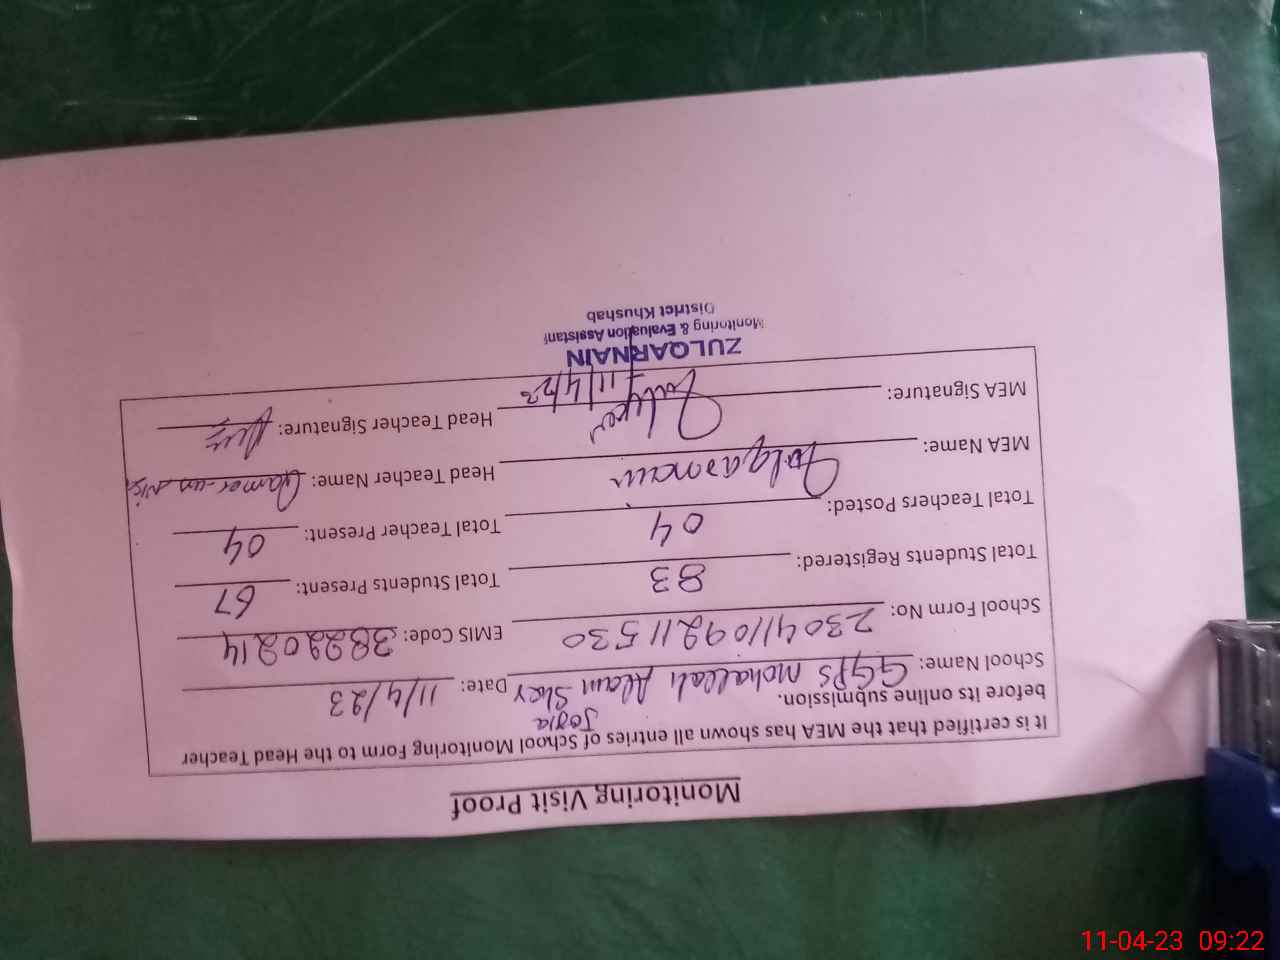 Monitoring Visit Proof
It is certified that the MEA has shown all entries of School Monitoring Form to the Head Teacher
before its online submission.
School Name: GGPS Mohallah Alam Sher Joyia Date: 11/4/23
School Form No: 230411092211530 EMIS Code: 38220214
Total Students Registered: 83 Total Students Present: 67
Total Teachers Posted: 04 Total Teacher Present: 04
MEA Name: Zulqarnain Head Teacher Name: Qamar-un-Nisa
MEA Signature: 11/4/23 Head Teacher Signature:
ZULQARNAIN
Monitoring & Evaluation Assistant
District Khushab
11-04-23 09:22